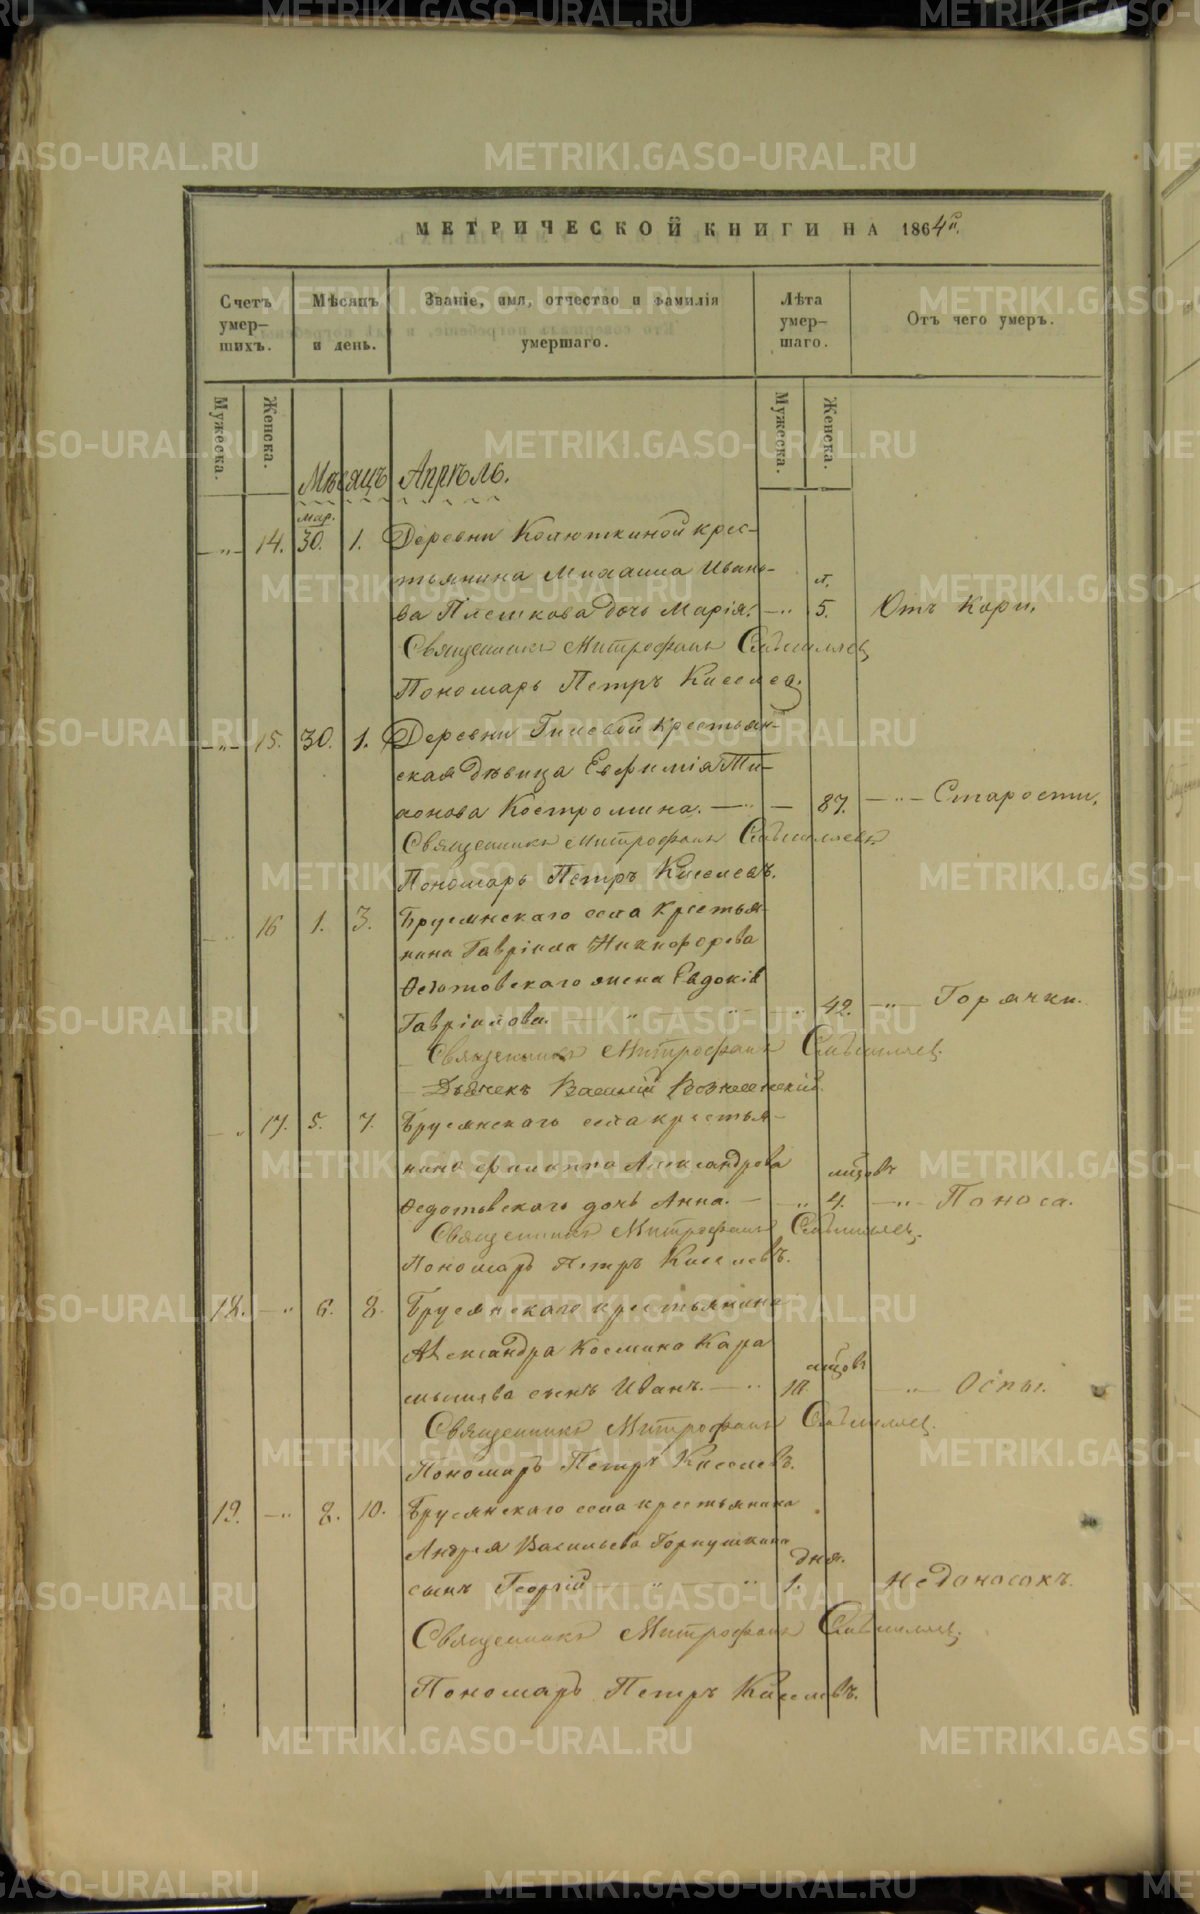 МЕТРИЧЕСКОЙ КНИГИ НА 1864й.
Счетъ умер-
шихъ.
Мѣсяцъ
и день.
Званіе, имя, отчество и фамилія
умершаго.
Лѣта
умер-
шаго.
Отъ чего умеръ.
Мужеска.
Женска.
Мужеска.
Женска.
Мѣсяцъ Апрѣль.
мар.
— " — 14. 30. 1. Деревни Колюткиной крес-
тьянина Михаила Ивано- л.
ва Плешкова дочь Марія. — " 5. Отъ Кори.
Священникъ Митрофанъ
Пономарь Петръ Киселев
— " — 15. 30. 1. Деревни Гилевой крестьян-
ская дѣвица Евфимія Ти-
хонова Костромина. — " — 87. — " — Старости.
Священникъ Митрофанъ
Пономарь Петръ Киселевъ.
— " 16 1. 3. Бруснскаго села крестья-
нина Гавріила Никифорова
Ѳедотовскаго жена Евдокія
Гавріилова. — " — " — " 42. — " — Горячки.
Священникъ Митрофанъ
Дьячекъ Василій Вознесенскій.
— " 17. 5. 7. Брусянскаго села крестья-
нина Филиппа Александрова мцовъ
Ѳедотовскаго дочь Анна. — " 4. — " — Поноса.
Священникъ Митрофанъ
Пономарь Петръ Киселевъ.
18. — " 6. 8. Брусянскаго крестьянина
Александра Космина Кара мцовъ
мышева сынъ Иванъ. — " 10. " — Оспы.
Священникъ Митрофанъ
Пономарь Петръ Киселевъ.
19. — " 8. 10. Брусянскаго села крестьянина
Андрея Васильева Горнушкина дня.
сынъ Георгій — " — " 1. недоносокъ.
Священникъ Митрофанъ
Пономарь Петръ Киселевъ.
METRIKI.GASO-URAL.RU